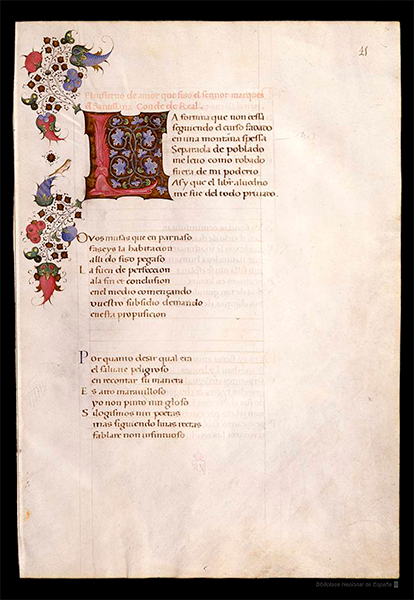 41
El infierno de amor que fiso el segnor marques
d Santillana Conde de Real
LA fortuna que non cessa
seguiendo el curso fadado
en una montaña spessa
Separada de poblado
me leuo como robado
fuera de mi poderio
Asy que el libr aluedrio
me fue del todo priuado
O vos musas que en parnaso
faseys la habitacion
alli do fiso pegaso
La fuen de perfeccion
ala fin et conclusion
enel medio començando
vuestro subsidio demando
enesta propusicion
Por quanto desir qual era
el saluaie peligroso
en recontar su manera
Es auto marauilloso
yo non pinto nin gloso
Silogismos nin poetas
mas siguiendo linas rectas
fablare non infintuoso
Biblioteca Nacional de España